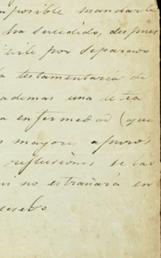 imposible mandarle
ha sucedido, despues
por separado
a testamentaria de
ademas una letra
enfermedad (que
mayores apuros
reflusiones de las
no estrañará en